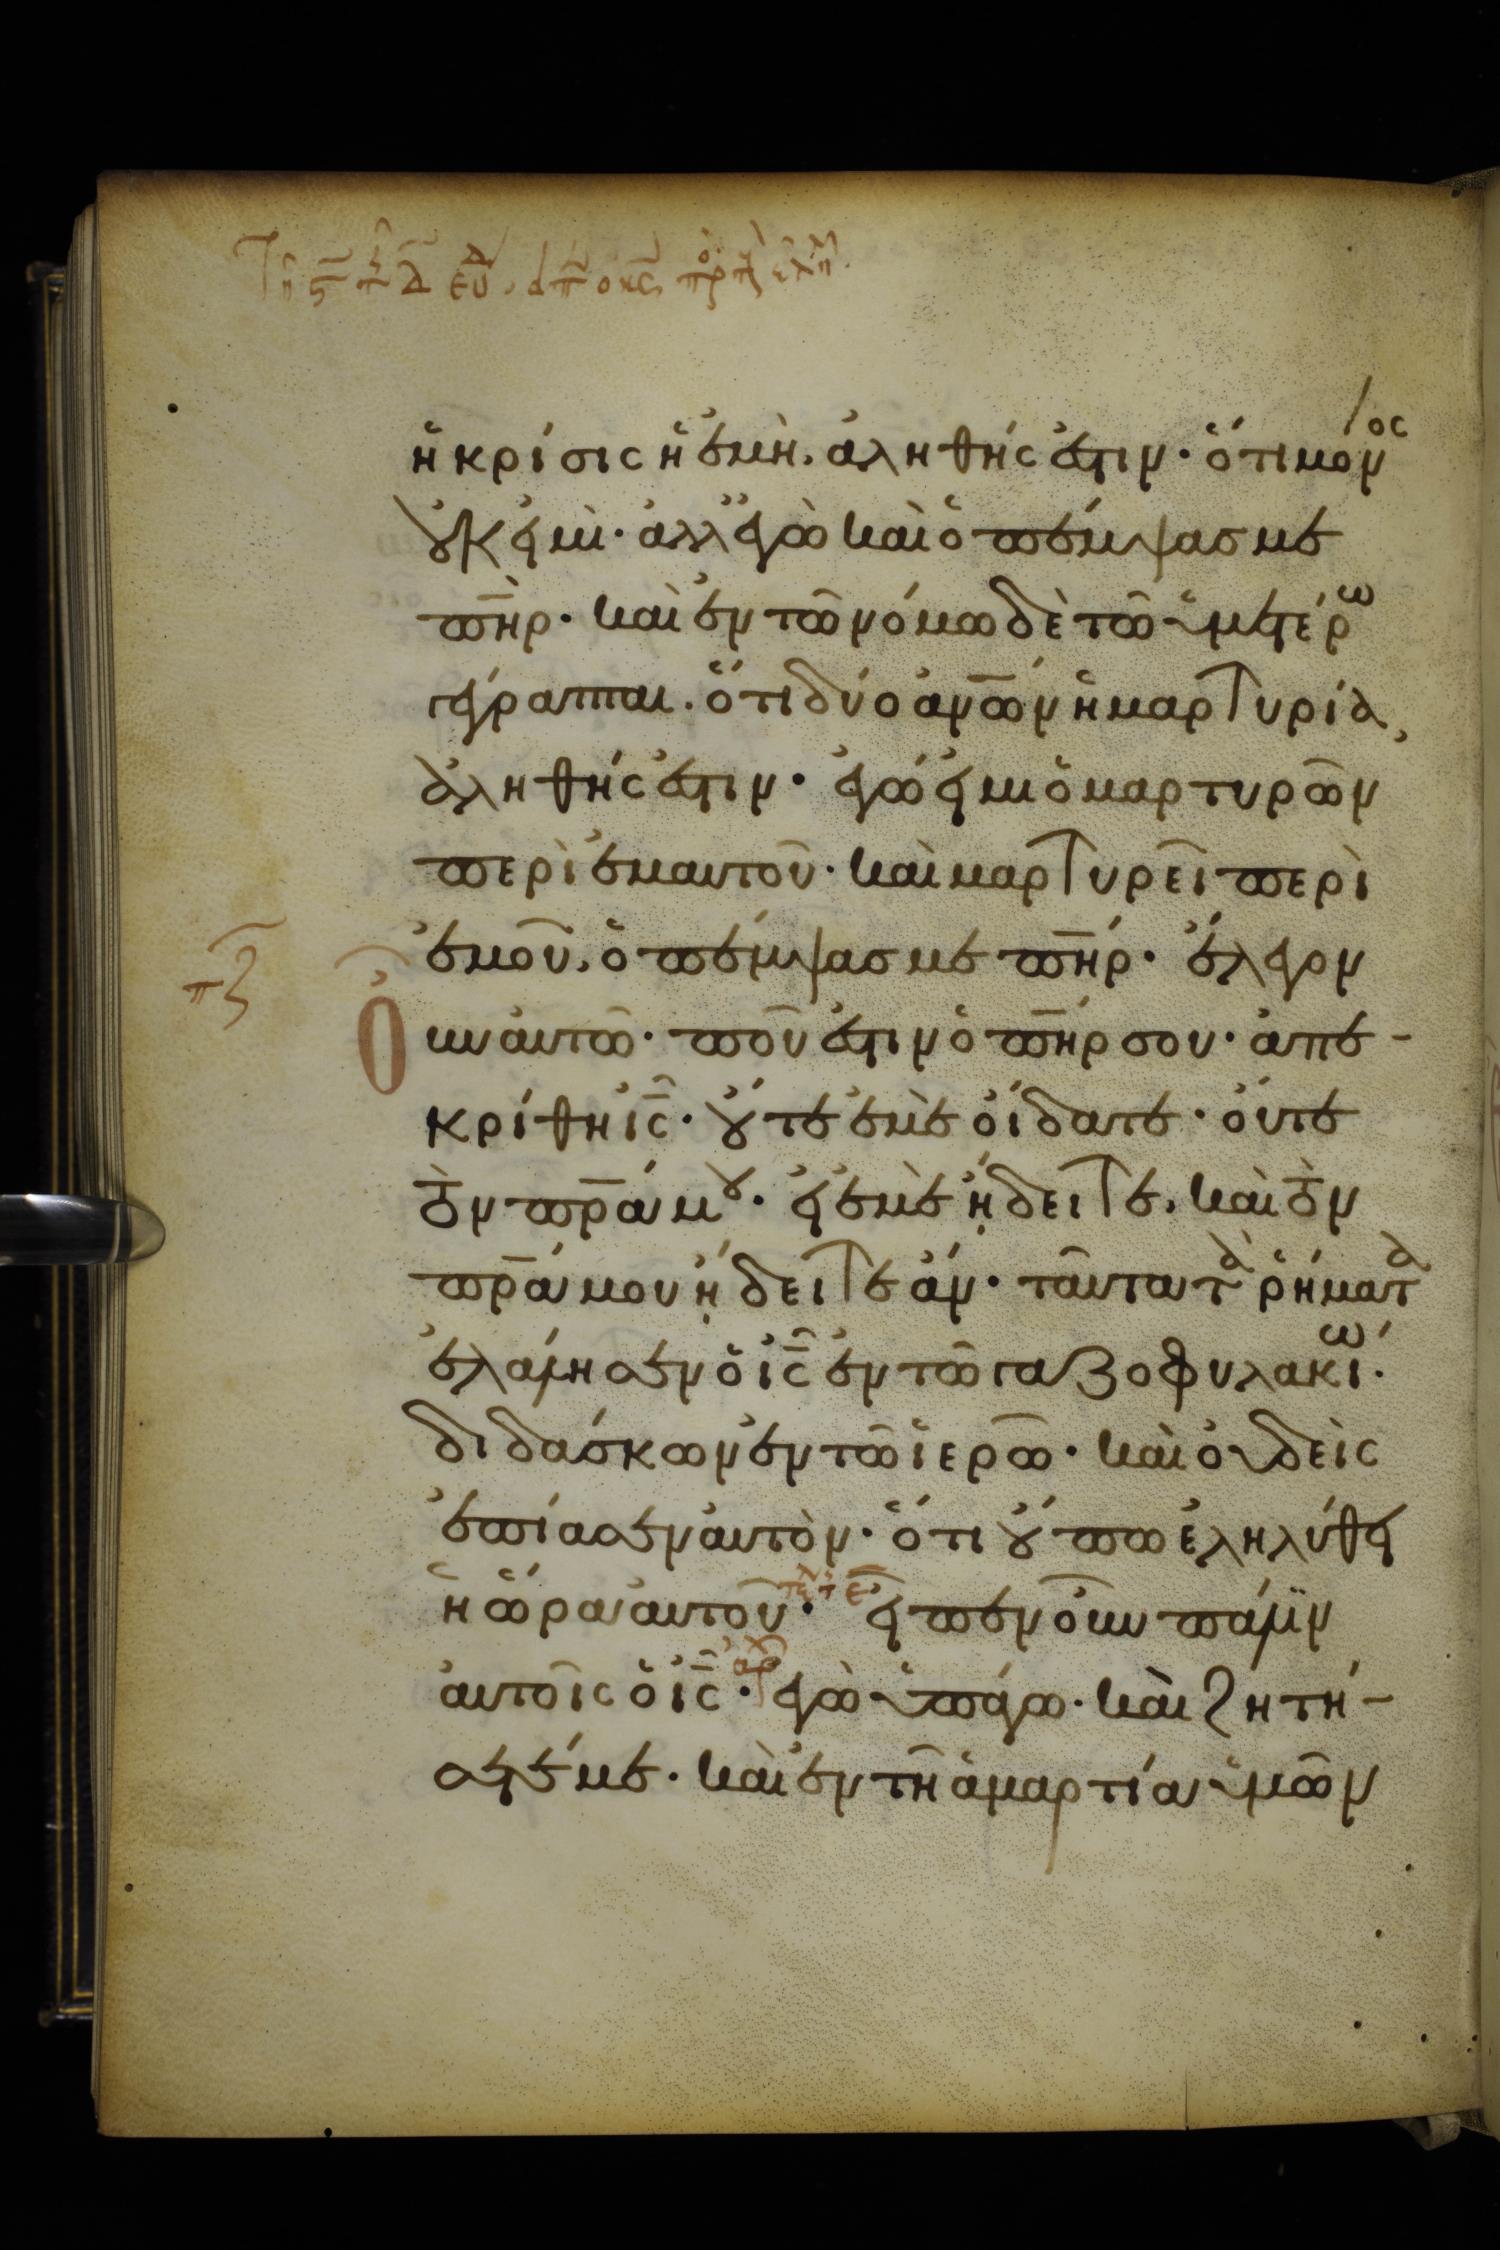 ἡ κρίσις ἡ ἐμὴ, ἀληθής ἐστιν· ὅτι μόνος
οὐκ εἰμὶ· ἀλλ' ἐγὼ καὶ ὁ πέμψας με
π̅η̅ρ· καὶ ἐν τῶ νόμω δὲ τῶ ὑμετέρω
γέγραπται. ὅτι δύο ἀν̅ω̅ν ἡ μαρτυρία,
ἀληθής ἐστιν· ἐγώ εἰμι ὁ μαρτυρῶν
περὶ ἐμαυτοῦ· καὶ μαρτυρεῖ περὶ
ἐμοῦ, ὁ πέμψας με π̅η̅ρ· ἔλεγον
πζ οὖν αὐτῶ· ποῦ ἐστιν ὁ π̅η̅ρ σου· ἀπε-
κρίθη ι̅ς̅· οὔτε ἐμὲ οἴδατε· οὔτε
τὸν π̅ρ̅α μου· εἰ ἐμὲ ᾔδειτε, καὶ τὸν
π̅ρ̅α μου ᾔδειτε ἄν· ταῦτα τὰ ῥήματα
ἐλάλησεν ὁ ι̅ς̅ ἐν τῶ γαζοφυλακίω·
διδάσκων ἐν τῶ ἱερῶ· καὶ οὐδεὶς
ἐπίασεν αὐτὸν· ὅτι οὔπω ἐληλύθει
ἡ ὥρα αὐτοῦ· εἶπεν οὖν πάλιν
αὐτοῖς ὁ ι̅ς̅· ἐγὼ ὑπάγω· καὶ ζητή-
σετέ με· καὶ ἐν τῆ ἁμαρτία ὑμῶν